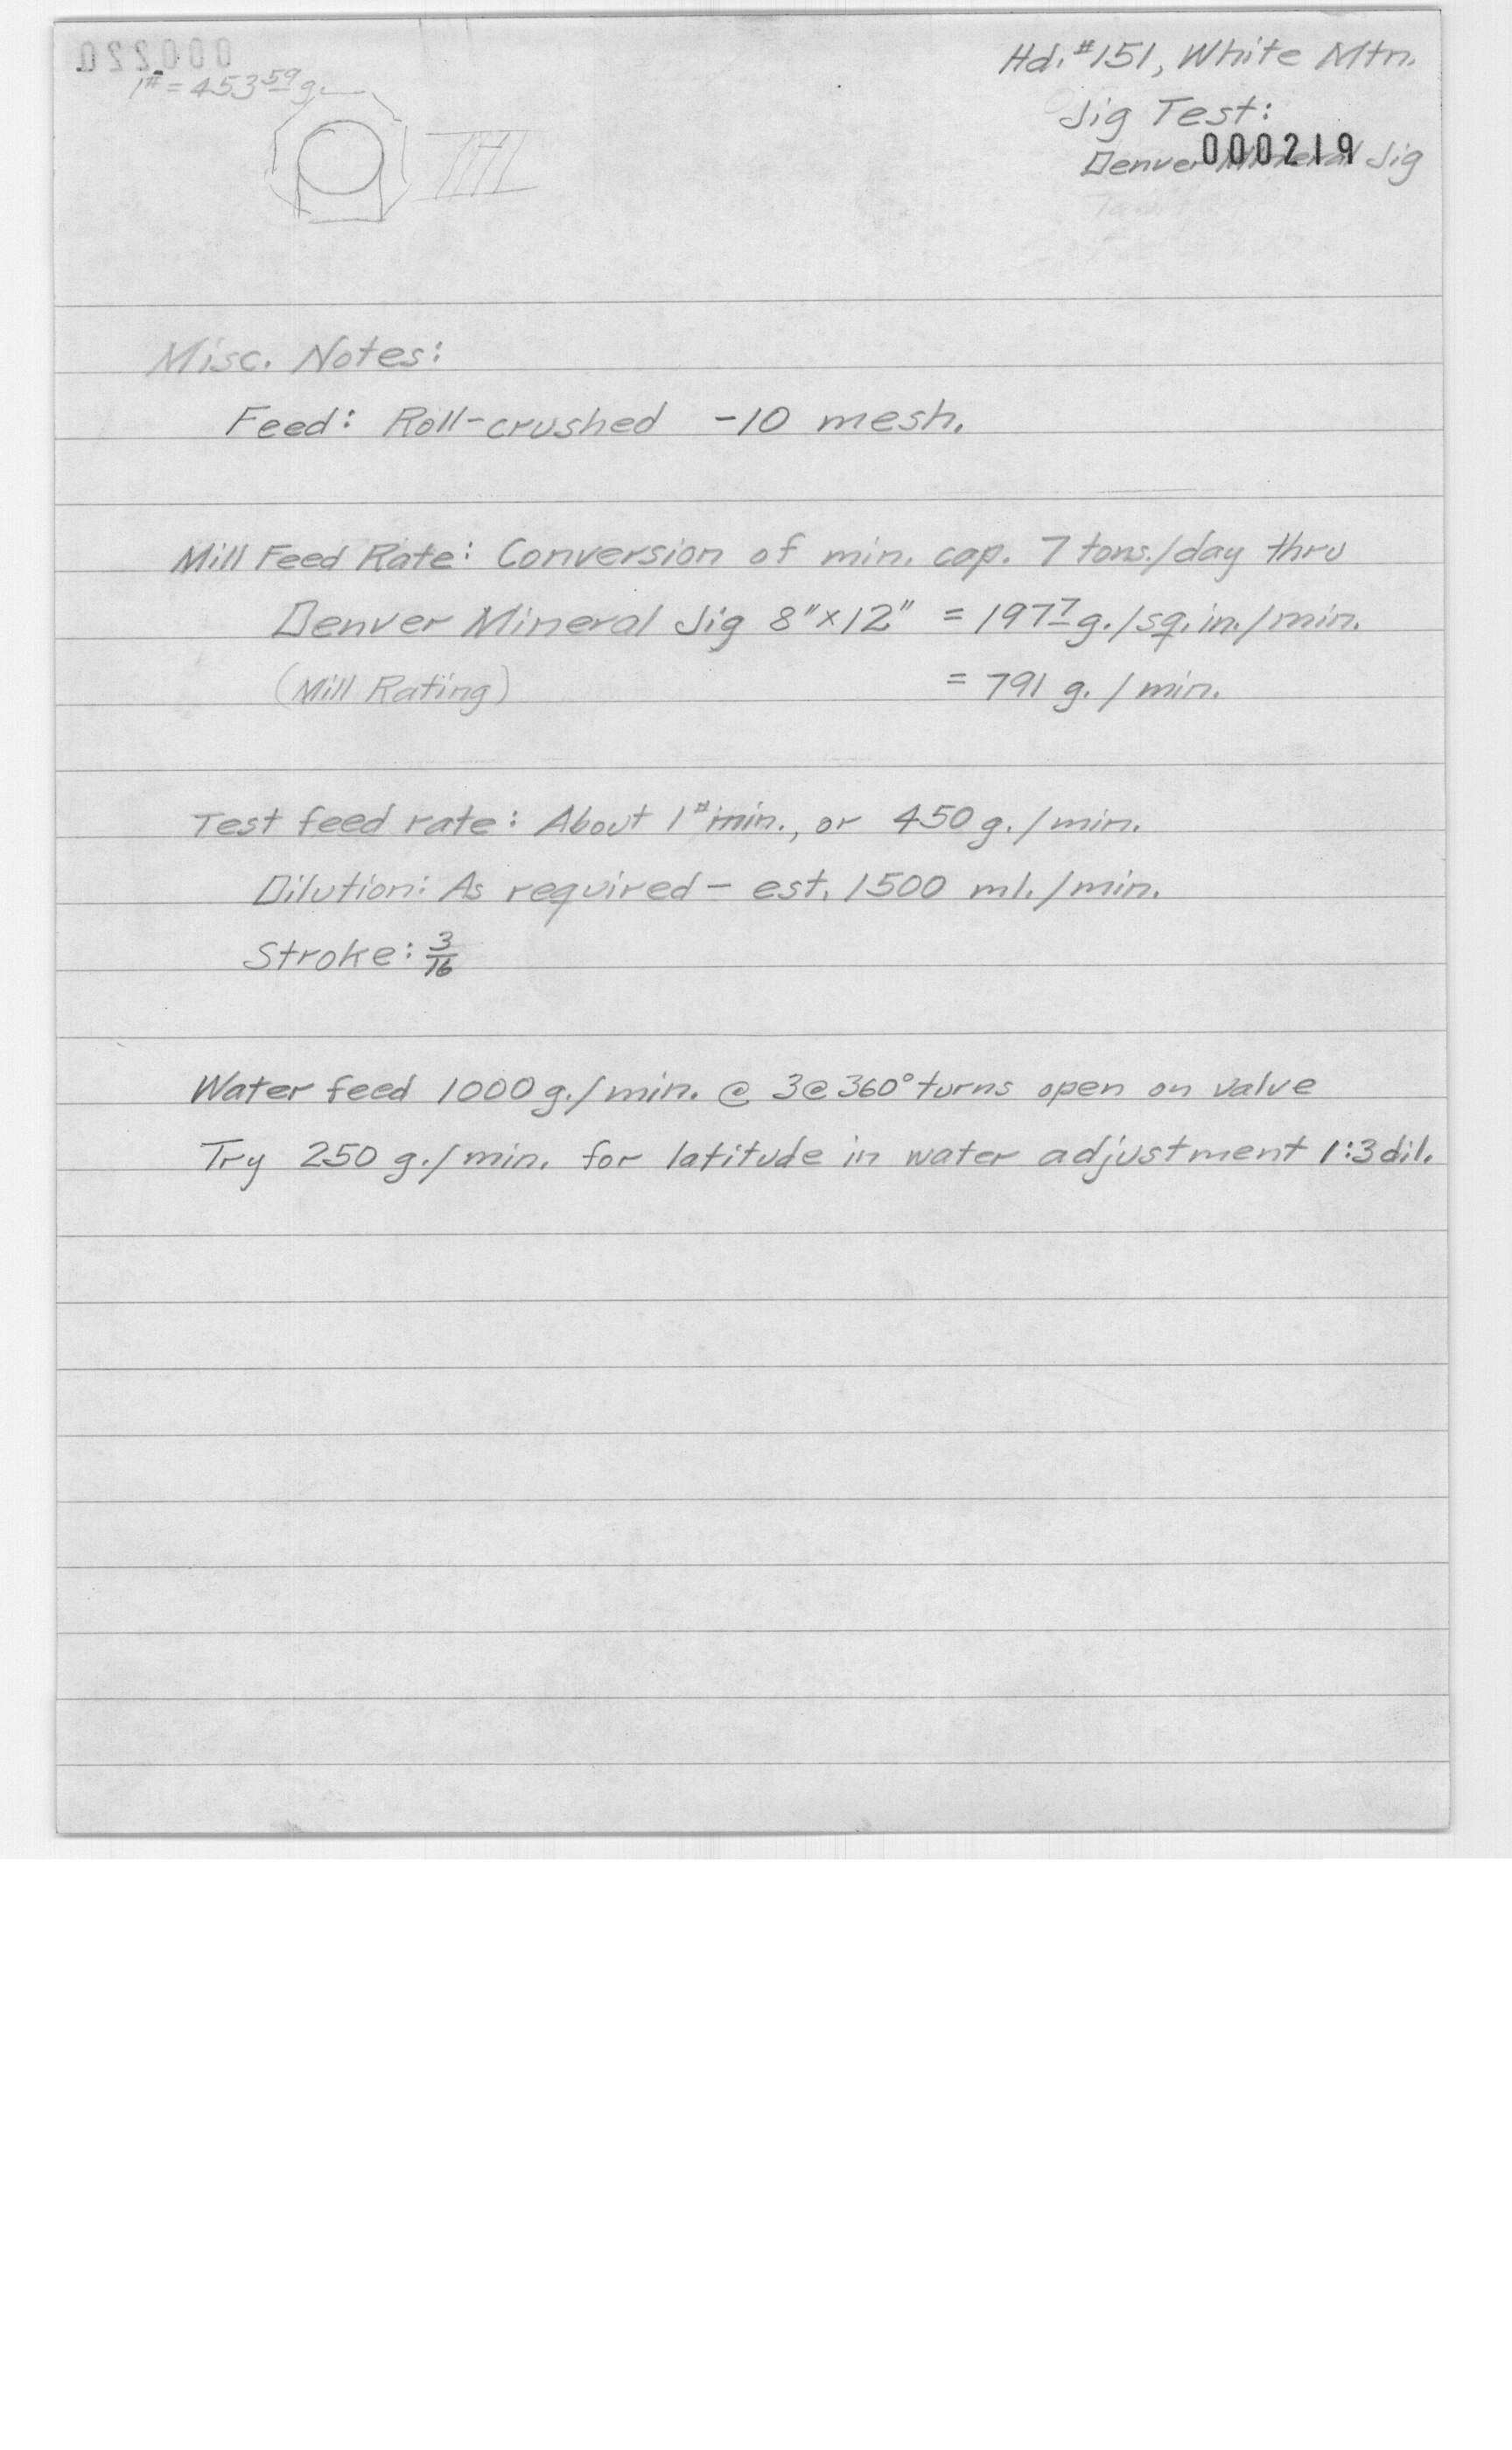 000220
1# = 453 59 g.
Hd. #151, White Mtn.
Jig Test:
000219
Denver Mineral Jig
Misc. Notes:
Feed: Roll-crushed -10 mesh.
Mill Feed Rate: Conversion of min. cap. 7 tons./day thru
Denver Mineral Jig 8"x12" = 197 7 g./sq.in./min.
(Mill Rating) = 791 g. / min.
Test feed rate: About 1# min., or 450 g. / min.
Dilution: As required - est. 1500 ml. / min.
Stroke: 3/16
Water feed 1000 g. / min. @ 3@360° turns open on valve
Try 250 g. / min. for latitude in water adjustment 1:3 dil.